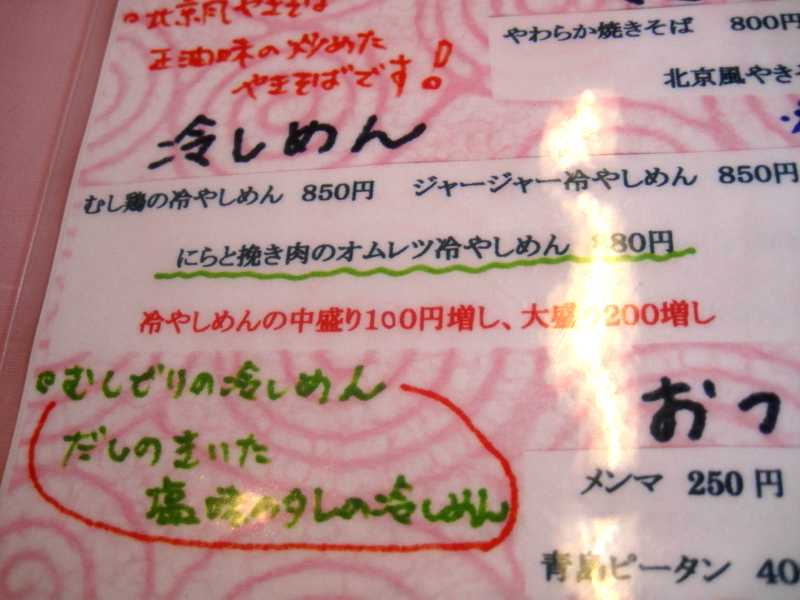 北京風やきそば
正油味の炒めた
やきそばです!
やわらか焼きそば 800円
北京風やき
冷しめん
むし鶏の冷やしめん 850円 ジャージャー冷やしめん 850円
にらと挽き肉のオムレツ冷やしめん 80円
冷やしめんの中盛り100円増し、大盛り200増し
むしどりの冷しめん
だしのきいた
塩味のタレの冷しめん
おつ
メンマ 250円
青島ピータン 40